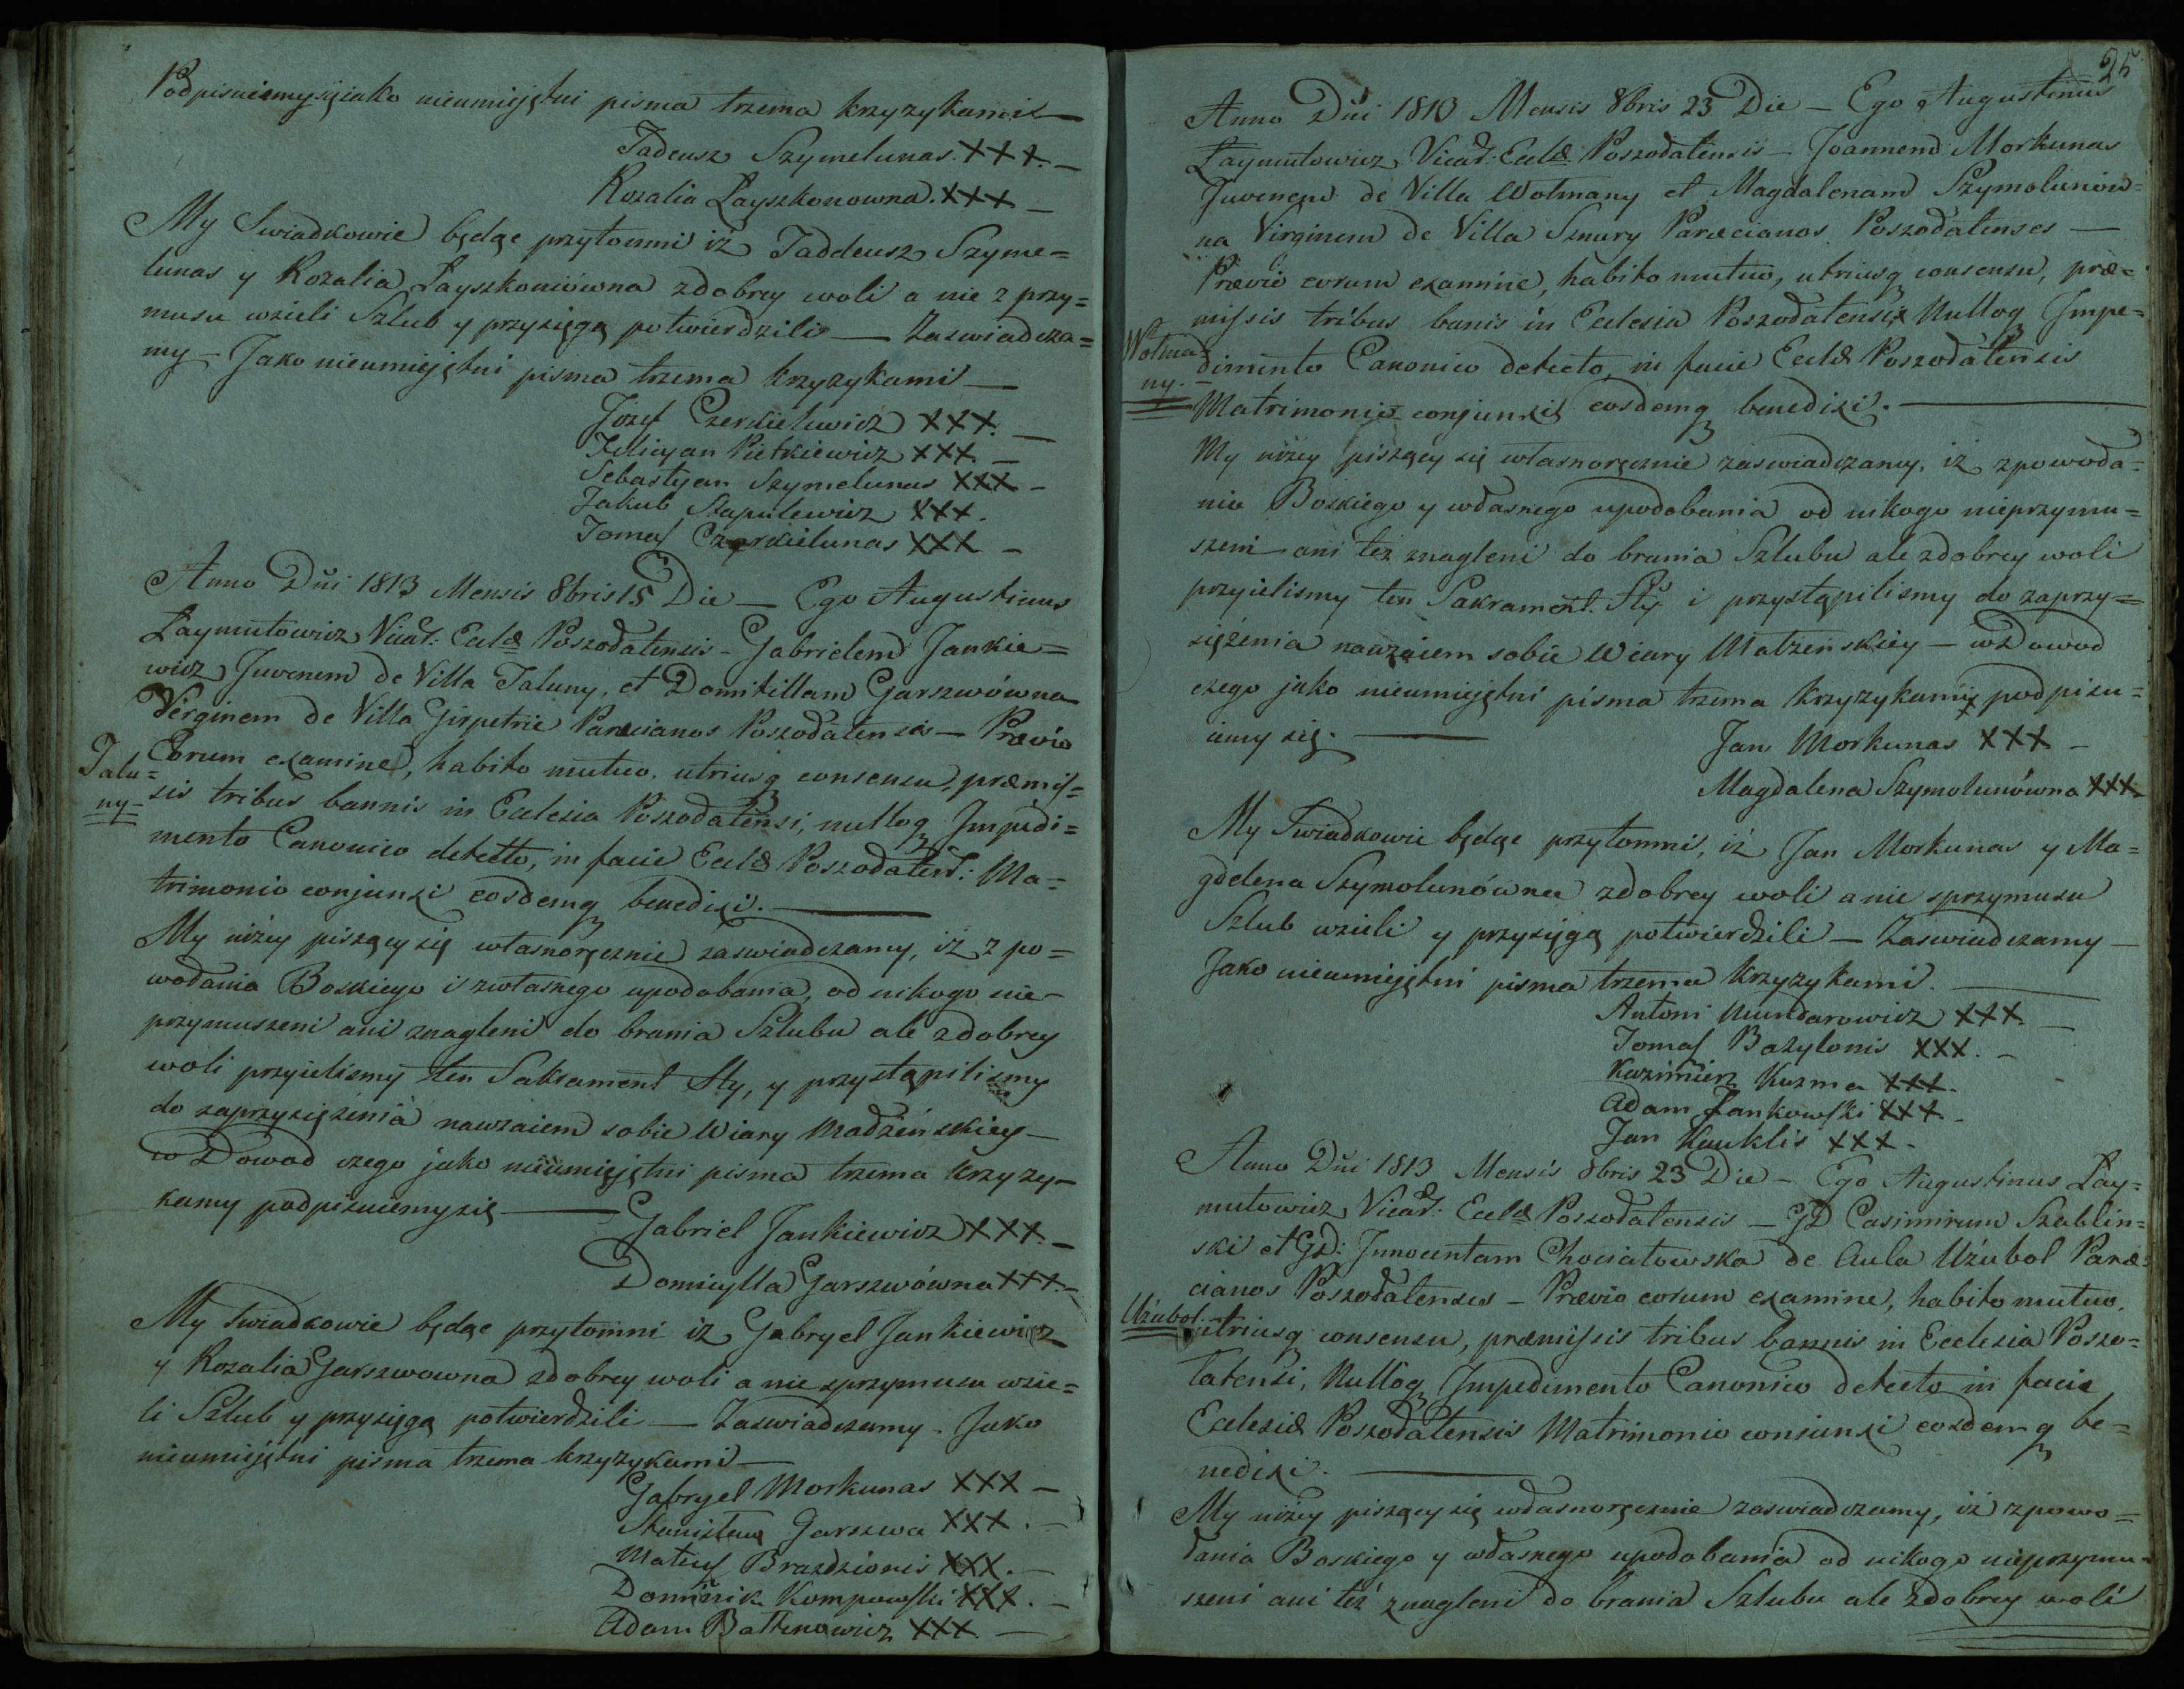 Podpisuiemy się iako nieumiejętni pisma trzema krzyzykami
Tadeusz Szymelunas. XXX.
Rozalia Łayszkonowna. XXX
My Swiadkowie będąc przytomni iż Taddeusz Szyme=
lunas y Rozalia Łayszkoniówna z dobrey woli a nie z przy=
musu wzieli Szlub y przysięgą potwierdzili — Zaswiadcza=
my — Jako nieumiejętni pisma trzema krzyzykami —
Jozef Czerkielewicz XXX.
Felicyan Pietkiewicz XXX.
Sebastyan Szymelunas XXX
Jakub Szapulewicz XXX.
Tomasz Czerkielunas XXX
Anno Dni 1813 Mensis 8bris 15 Die — Ego Augustinus
Łaymutowicz Vicar: Eccl Poszodatensis — Gabrielem Jankie=
wicz Juvenem de Villa Taluny, et Domitillam Garszwówna
Virginem de Villa Girpetrie Paræcianos Poszodatenses — Prævio
Eorum examine, habito mutuo, utriusq consensu, præmis=
Talu=
ny=
sis tribus bannis in Ecclesia Poszodatensi, nulloq Impedi=
mento Canonico detecto, in facie Eccl Poszodatens: Ma=
trimonio conjunxi eosdemq benedixi.
My niżey piszący się własnoręcznie zaswiadczamy, iż z po=
wodania Boskiego i z własnego upodobania, od nikogo nie-
przymuszeni ani znagleni do brania Szlubu ale z dobrey
woli przyielismy ten Sakrament Sty, y przystąpilismy
do zaprzysiężenia nawzaiem sobie Wiary Madżeńskiey —
w Dowod czego jako nieumiejętni pisma trzema krzyzy-
kamy podpisuiemy się — Gabriel Jankiewicz XXX.
Domicylla Garszwówna XXX.
My Swiadkowie będąc przytomni iż Gabryel Jankiewicz
y Rozalia Garszwowna z dobrey woli a nie z przymusu wzie=
li Szlub y przysięgą potwierdzili — Zaswiadczamy. Jako
nieumiejętni pisma trzema krzyzykami —
Gabryel Morkunas XXX —
Stanisław Garszwa XXX.
Mateusz Brazdzionis XXX.
Dominik Kompowski XXX.
Adam Battinowicz XXX.
25
Anno Dni 1813 Mensis 8bris 23 Die — Ego Augustinus
Łaymutowicz Vicar: Eccl: Poszodatensis — Joannem Morkunas
Juvenem de Villa Wotmany et Magdalenam Szymolunów=
na Virginem de Villa Sznury Paræcianos Poszodatenses —
Prævio eorum examine, habito mutuo, utriusq consensu, præ=
missis tribus banis in Ecclesia Poszodatensi Nulloq Impe=
Wotma
ny.
dimento Canonico detecto, in facie Eccl Poszodatensis
Matrimonio conjunxi eosdemq benedixi.
My niżey piszący się własnoręcznie zaswiadczamy, iż z powoda=
nia Boskiego y własnego upodobania od nikogo nieprzymu=
szeni ani też znagleni do brania Szlubu ale z dobrey woli
przyielismy ten Sakrament Sty i przystąpilismy do zaprzy=
siężenia nawzaiem sobie Wiary Matżeńskiey — w Dowod
czego jako nieumiejętni pisma trzema krzyzykami podpisu=
iemy się. — Jan Morkunas XXX —
Magdalena Szymolunówna XXX.
My Swiadkowie będąc przytomni, iż Jan Morkunas y Ma=
gdelena Szymolunówna z dobrey woli a nie z przymusu
Szlub wzieli y przysięgą potwierdzili — Zaswiadczamy —
Jako nieumiejętni pisma trzema krzyzykami.
Antoni Mundarowicz XXX.
Tomasz Bazylonis XXX.
Kazimierz Kuzma XXX.
Adam Jankowski XXX
Jan Kauklis XXX.
Anno Dni 1813 Mensis 8bris 23 Die — Ego Augustinus Łay=
mutowicz Vicar: Eccl Poszodatensis — GD Casimirum Szablin=
ski et GD: Innocentam Chociatowska de Aula Użubol Paræ=
cianos Poszodatenses — Prævio eorum examine, habito mutuo,
Użubol.
utriusq consensu, præmissis tribus bannis in Ecclesia Poszo=
datensi, Nulloq Impedimento Canonico detecto in facie
Ecclesiæ Poszodatensis Matrimonio coniunxi eosdemq be=
nedixi.
My niżey piszący się własnoręcznie zaswiadczamy, iż z powo=
dania Boskiego y własnego upodobania od nikogo nieprzymu=
szeni ani też znagleni do brania Szlubu ale z dobrey woli